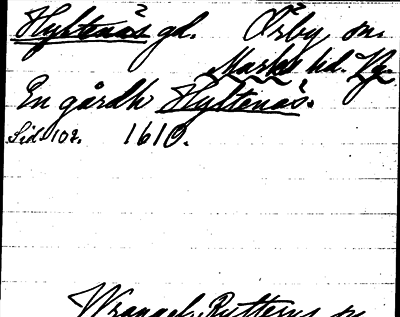 Hyltenäs gd. Örby sn.
Marks hd. Vg.
En gårdh Hyltenäs.
Sid. 102. 1610.
Wrangel,